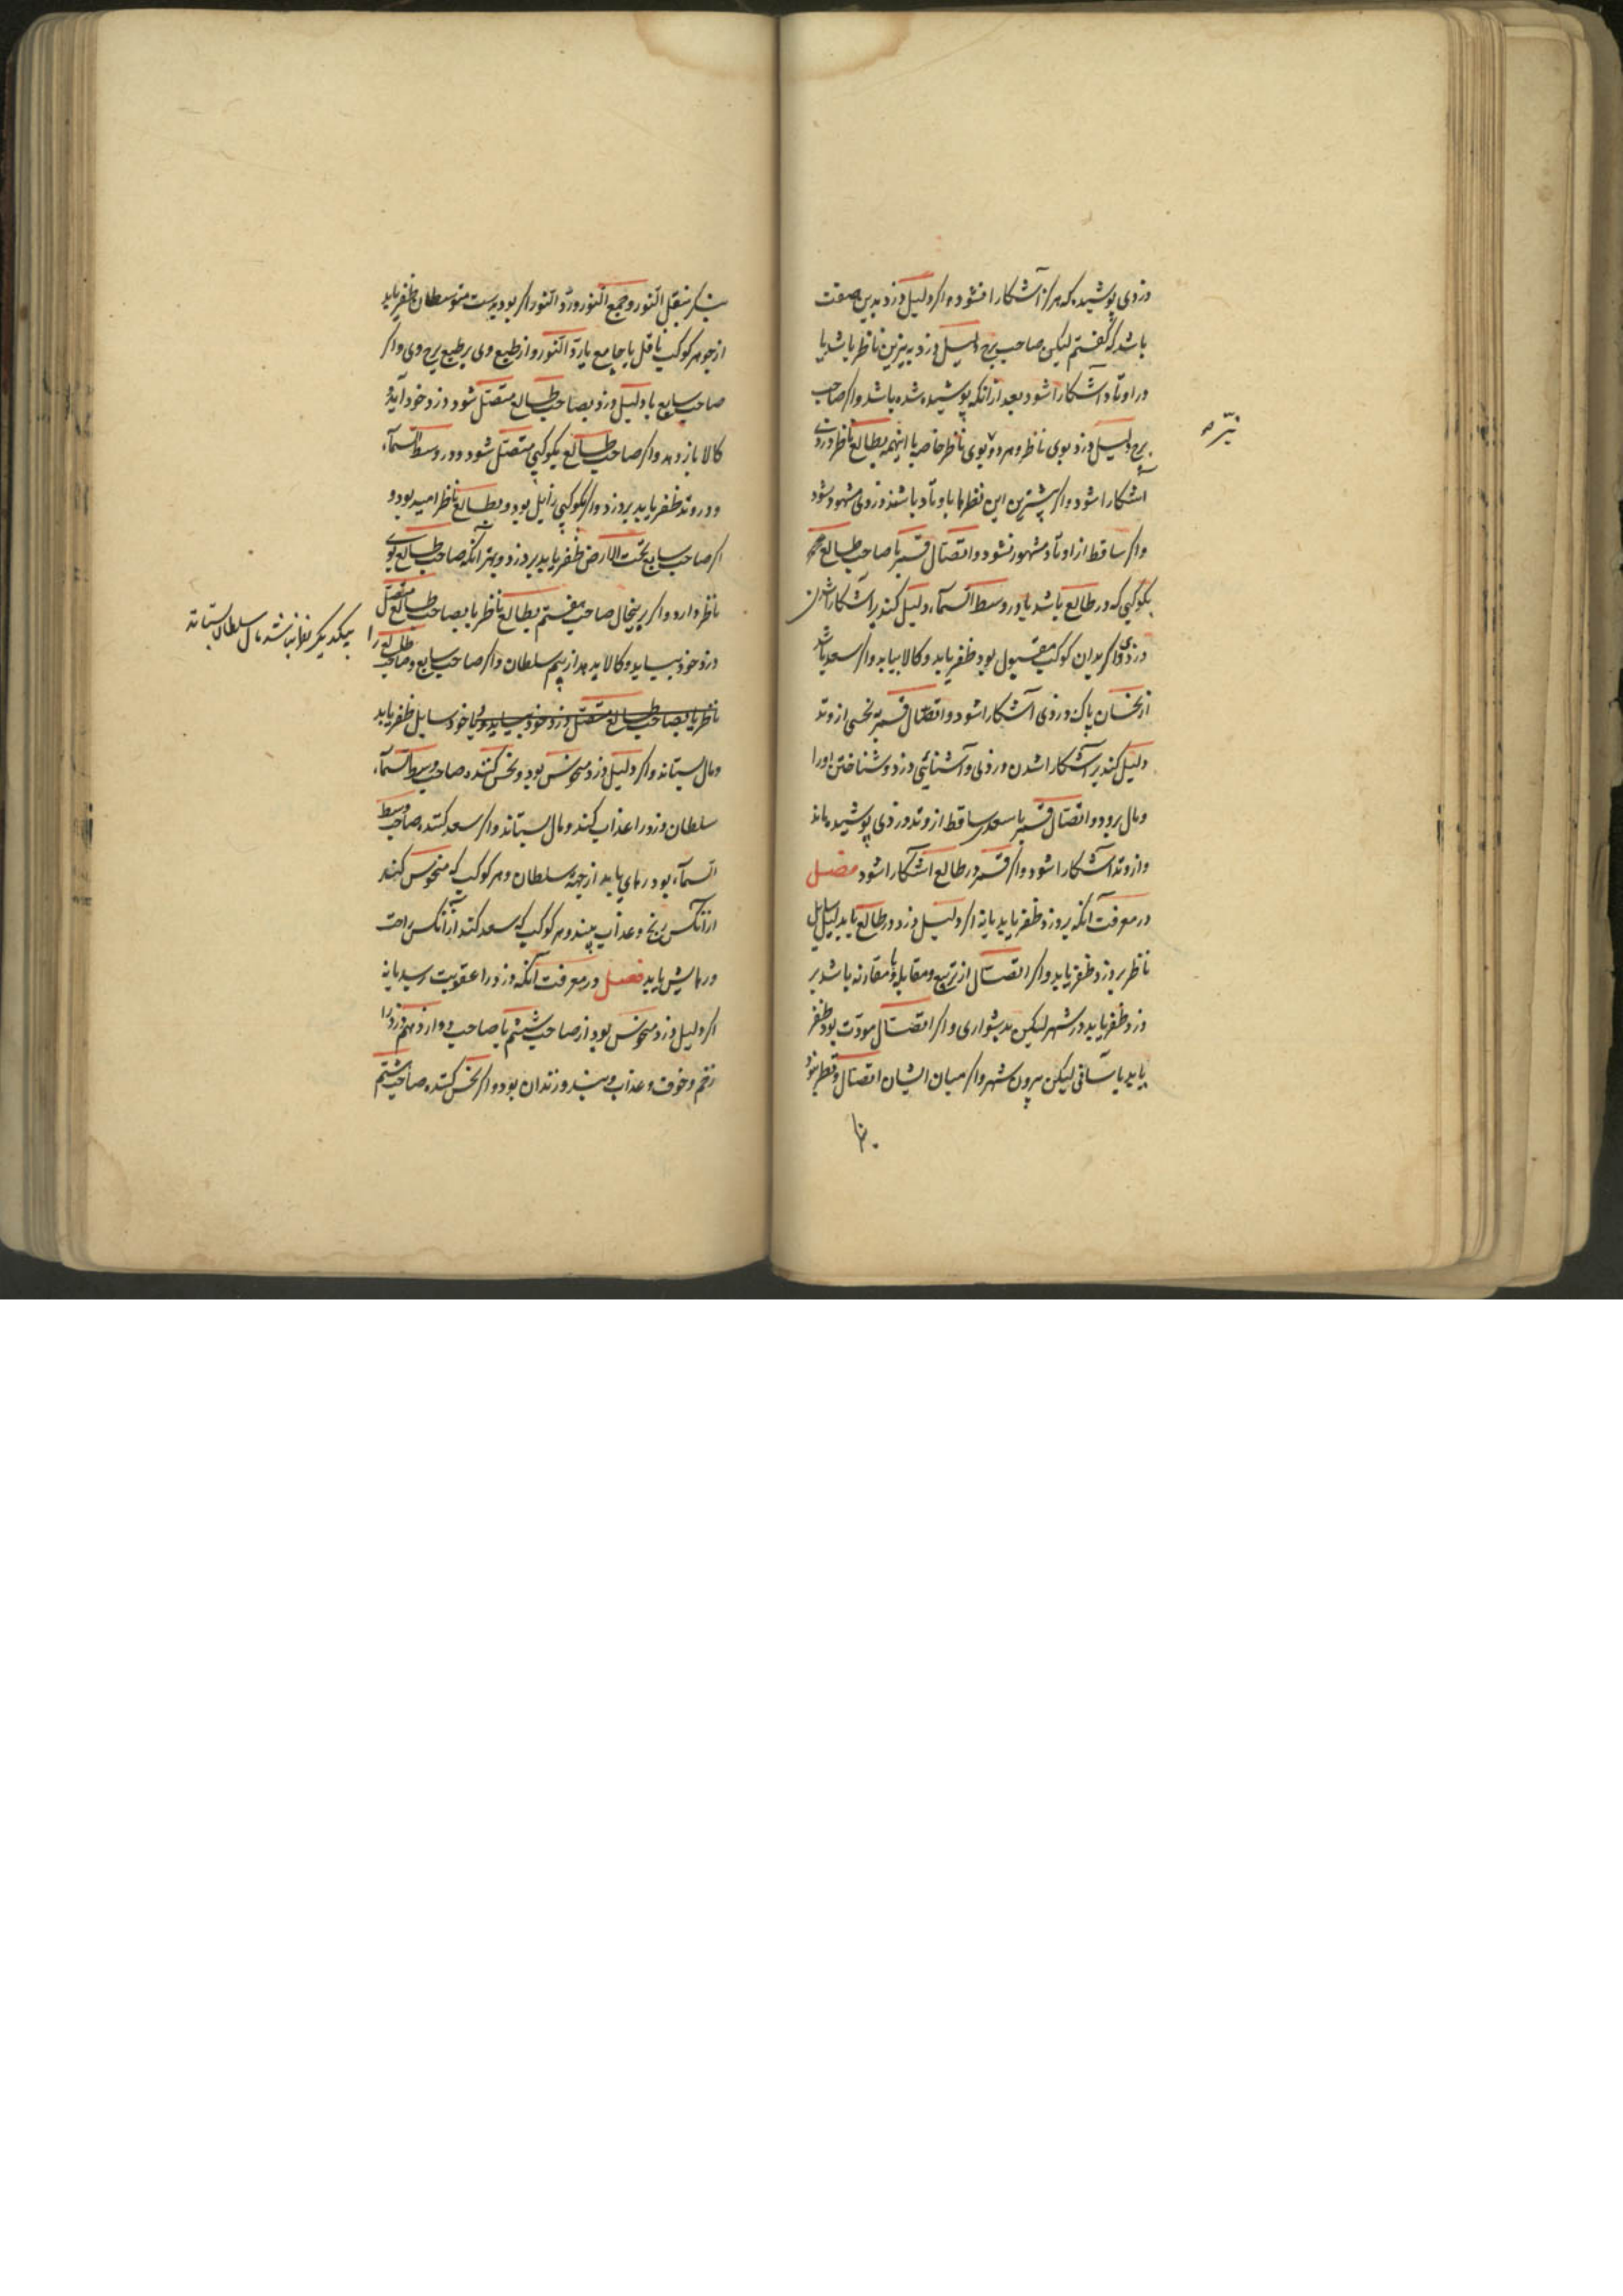 دزدی پوشیده که هرگز آشکارا نشود و اگر دلیل دزد بدین صفت
باشد که گفتم لیکن صاحب برج دلیل دزد به نیرین ناظر باشد یا
در اوتاد آشکارا شود بعد از آنکه پوشیده شده باشد و اگر صاحب
برج دلیل دزد بوی ناظر و هر دو بوی ناظر خاصه با اینهمه بطالع ناظر دزدی
آشکارا شود و اگر بیشترین این نظرها با وتاد باشند دزدی مشهور شود
و اگر ساقط از اوتاد مشهور نشود و اتصال قمر با صاحب طالع
بکوکبی که در طالع باشد یا در وسط السماء دلیل کند بر آشکارا شدن
دزدی و اگر بدان کوکب مقبول بود ظفر یابد و کالا بیابد و اگر سعد باشد
از نحسان پاک دزدی آشکارا شود و اتصال قمر بنحسی از وتد
دلیل کند بر آشکارا شدن دزدی و آشنائی دزد و شناختن او را
و مال برود و اتصال قمر با سعدی ساقط از وتد دزدی پوشیده ماند
و از وتد آشکارا شود و اگر قمر در طالع آشکارا شود فصل
در معرفت آنکه بر دزد ظفر یابد یا نه اگر دلیل دزد در طالع یا بدلیل سایل
ناظر بر دزد ظفر یابد و اگر اتصال از تربیع و مقابله و یا مقارنه باشد بر
دزد ظفر یابد در شهر لیکن بدشواری و اگر اتصال مودت بود ظفر
یابد بآسانی لیکن بیرون شهر و اگر میان ایشان اتصال و نظر نبود
بنگر
نیر
بنگر بنقل النور و جمع النور و رد النور اگر بود بدست متوسطان ظفر یابد
از جوهر کوکب ناقل یا جامع یا رد النور و از طبع وی بر طبع برج وی و اگر
صاحب سابع یا دلیل دزد بصاحب طالع متصل شود دزد خود آید و
کالا باز دهد و اگر صاحب طالع بکوکبی متصل شود در وسط السماء
و در وتد ظفر یابد بر دزد و اگر بکوکبی زایل بود و بطالع ناظر امید بود و
اگر صاحب سابع تحت الارض ظفر یابد بر دزد و بهتر آنکه صاحب طالع بوی
ناظر دارد و اگر برینحال صاحب هفتم بطالع ناظر یا بصاحب طالع متصل
دزد خود بیاید و کالا بدهد از بیم سلطان و اگر صاحب سابع و صاحب طالع را
بیکدیگر نظر نباشد مال سلطان بستاند
ناظر یا بصاحب طالع متصل دزد خود بیاید و یا خود سایل ظفر یابد
و مال بستاند و اگر دلیل دزد منحوس بود و نحس کننده صاحب وسط السماء
سلطان دزد را عذاب کند و مال بستاند و اگر سعد کننده صاحب وسط
السماء بود رهای یابد از جهة سلطان و هر کوکب که منحوس کند
از آنکس رنج و عذاب بیند و هر کوکب که سعد کند از آنکس راحت
و رهایش یابد فصل در معرفت آنکه دزد را عقوبت رسد یا نه
اگر دلیل دزد منحوس بود از صاحب ششم یا صاحب دوازدهم دزد را
زخم و خوف و عذاب و بند و زندان بود و اگر نحس کننده صاحب هشتم